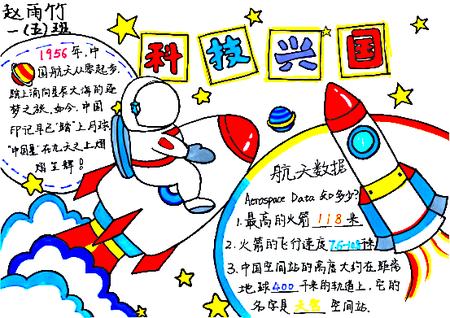 赵雨竹
一(五)班
科技兴国
1956年,中
国航天从零起步,
踏上滴向星辰大海的逐
梦之旅.如今.中国
印记早已"踏"上月球
"中国星"在九天之上熠
熠生辉!
航天数据
Aerospace Data 知多少?
1.最高的火箭 118米
2.火箭的飞行速度
3.中国空间站的高度大约在距离
地球400千米的轨道上,它的
名字是 天宫 空间站.